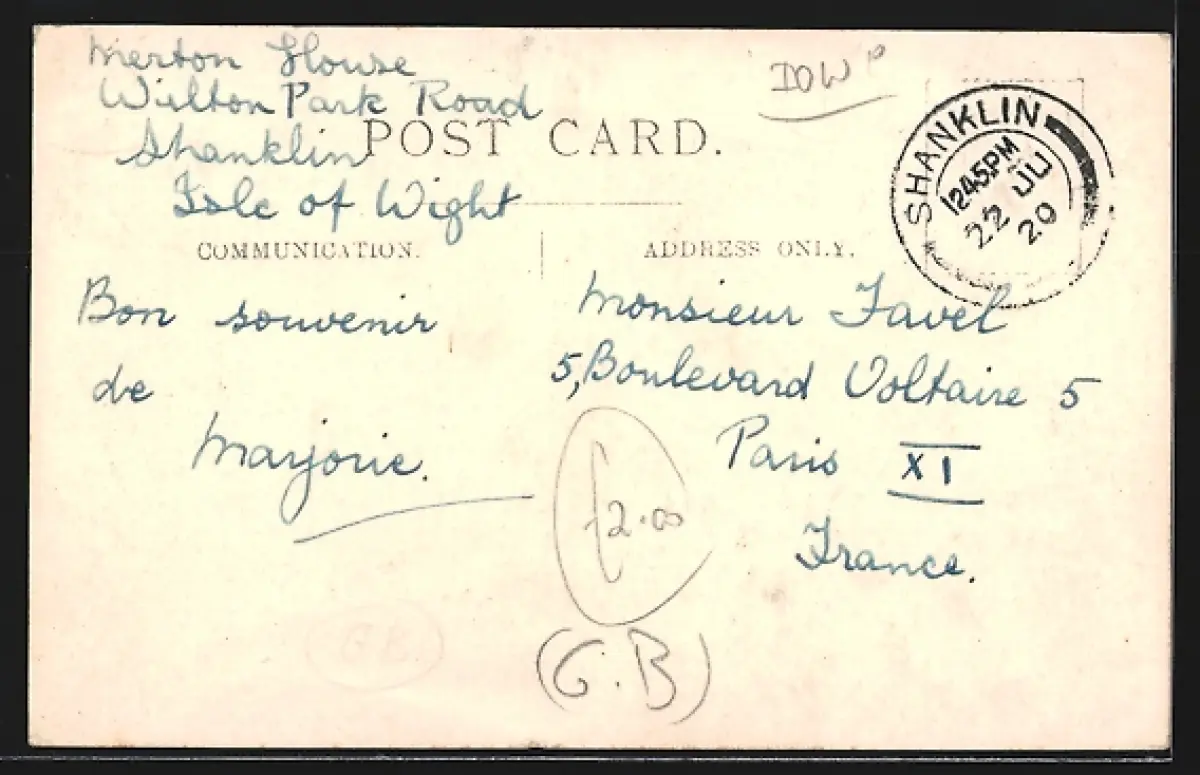 Merton House
Wilton Park Road
Shanklin
Isle of Wight
POST CARD.
COMMUNICATION.
Bon souvenir
de
Marjorie.
DOW P
SHANKLIN
1245PM
22 JU
20
ADDRESS ONLY.
Monsieur Favel
5, Boulevard Voltaire 5
Paris XI
France.
£2.00
(G.B)